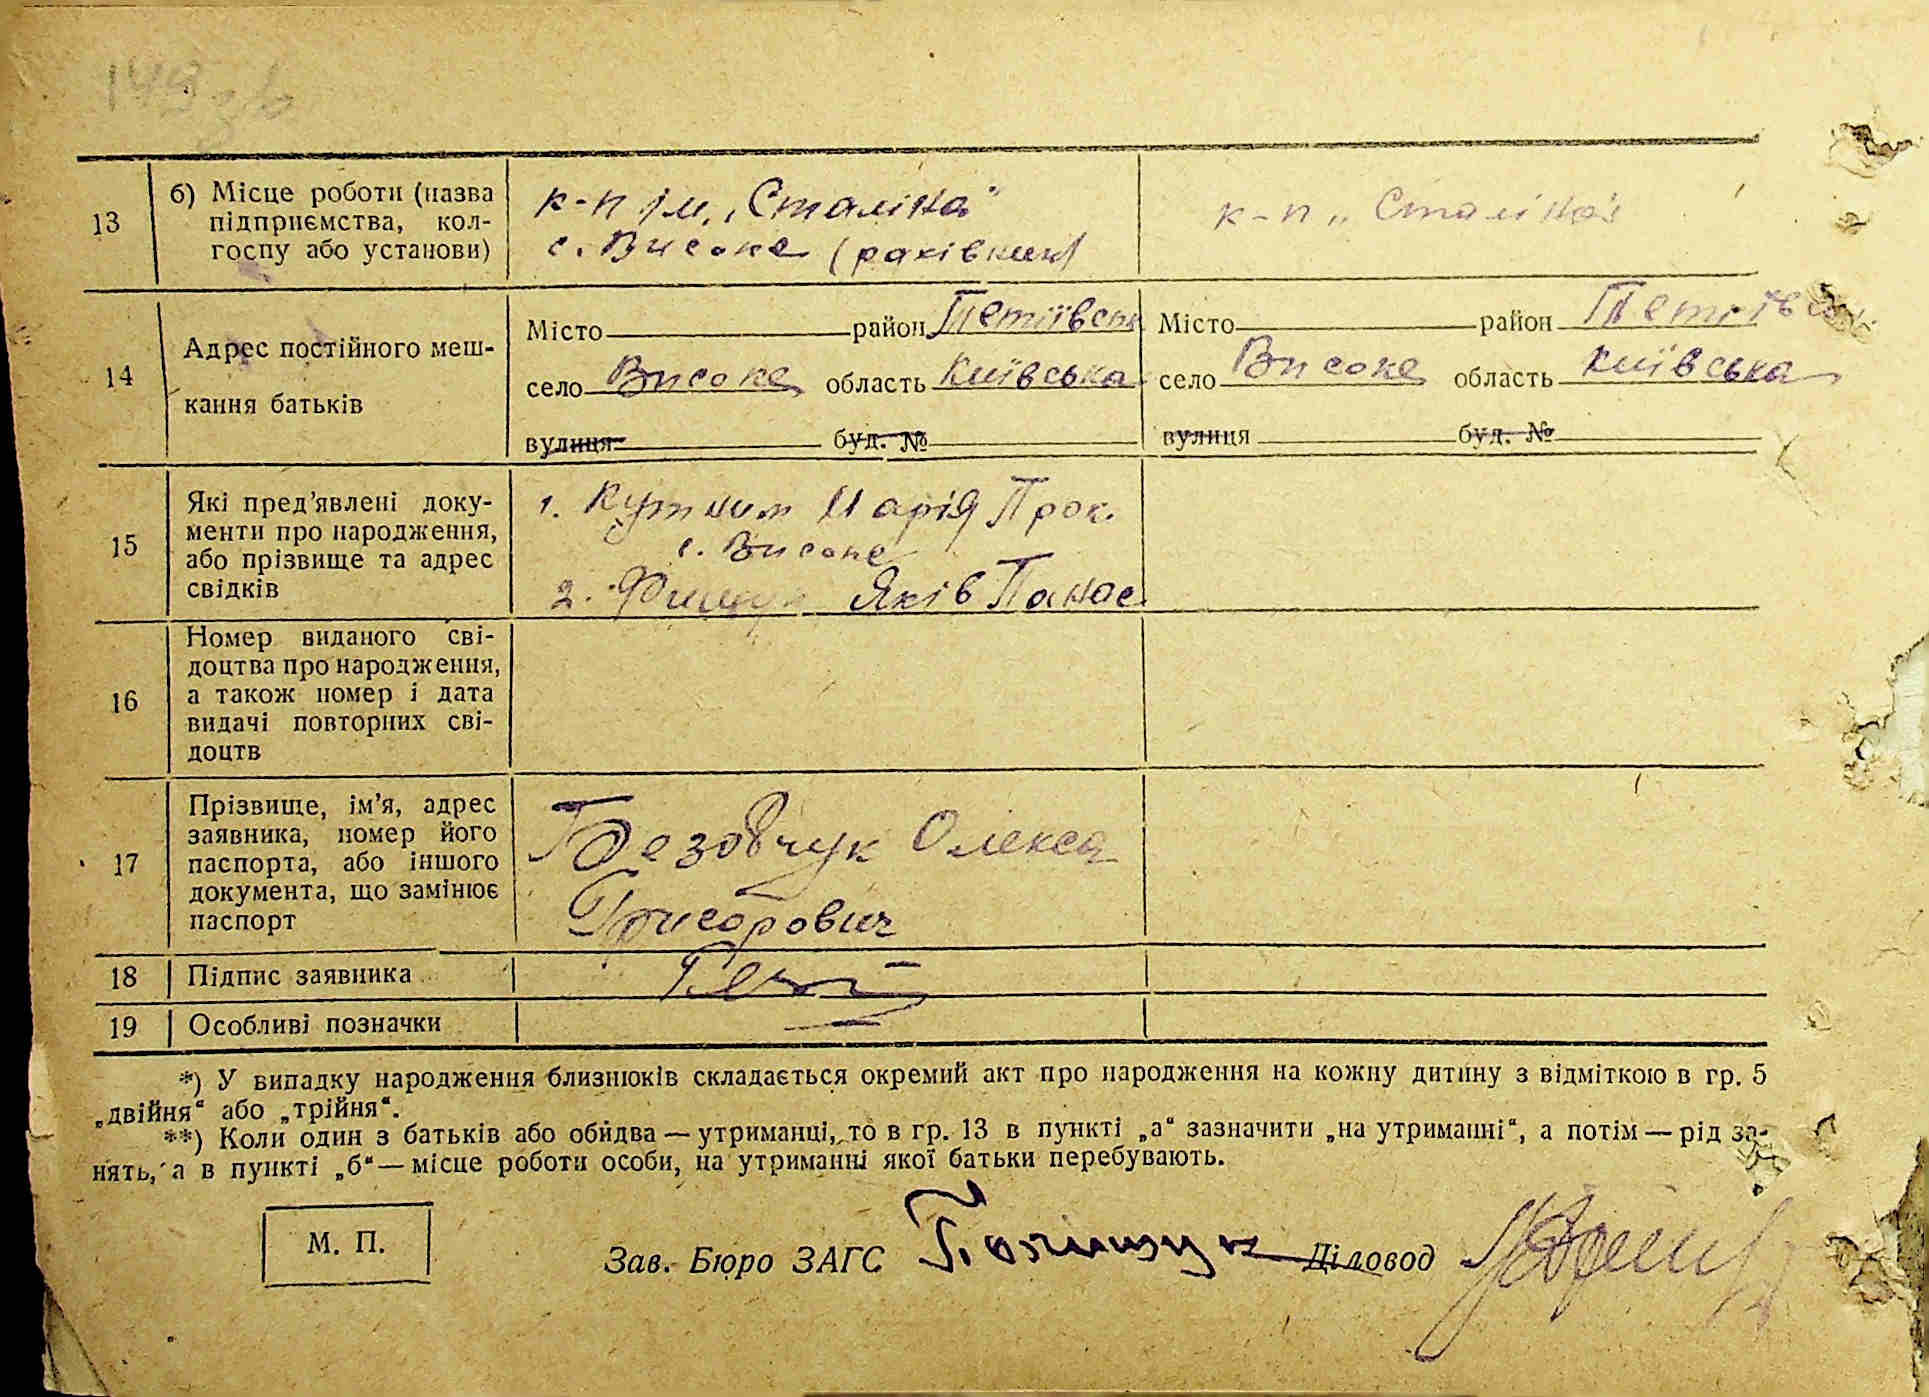 149 зв
13
б) Місце роботи (назва
підприємства, кол-
госпу або установи)
к-п ім. „Сталіна"
с. Високе (раківник)
к-п „Сталіна"
14
Адрес постійного меш-
кання батьків
Місто район Тетіївськ
село Високе область Київська
вулиця буд. №
Місто район Тетіївськ.
село Високе область Київська
вулиця буд. №
15
Які пред'явлені доку-
менти про народження,
або прізвище та адрес
свідків
1. Марія Прок.
с. Високе
2. Яків Панас.
16
Номер виданого сві-
доцтва про народження,
а також номер і дата
видачі повторних сві-
доцтв
17
Прізвище, ім'я, адрес
заявника, номер його
паспорта, або іншого
документа, що замінює
паспорт
Безовчук Олекса
Григорович
18
Підпис заявника
19
Особливі позначки
*) У випадку народження близнюків складається окремий акт про народження на кожну дитину з відміткою в гр. 5
„двійня“ або „трійня“.
**) Коли один з батьків або обидва — утриманці, то в гр. 13 в пункті „а“ зазначити „на утриманні“, а потім — рід за-
нять, а в пункті „б“ — місце роботи особи, на утриманні якої батьки перебувають.
М. П.
Зав. Бюро ЗАГС Діловод